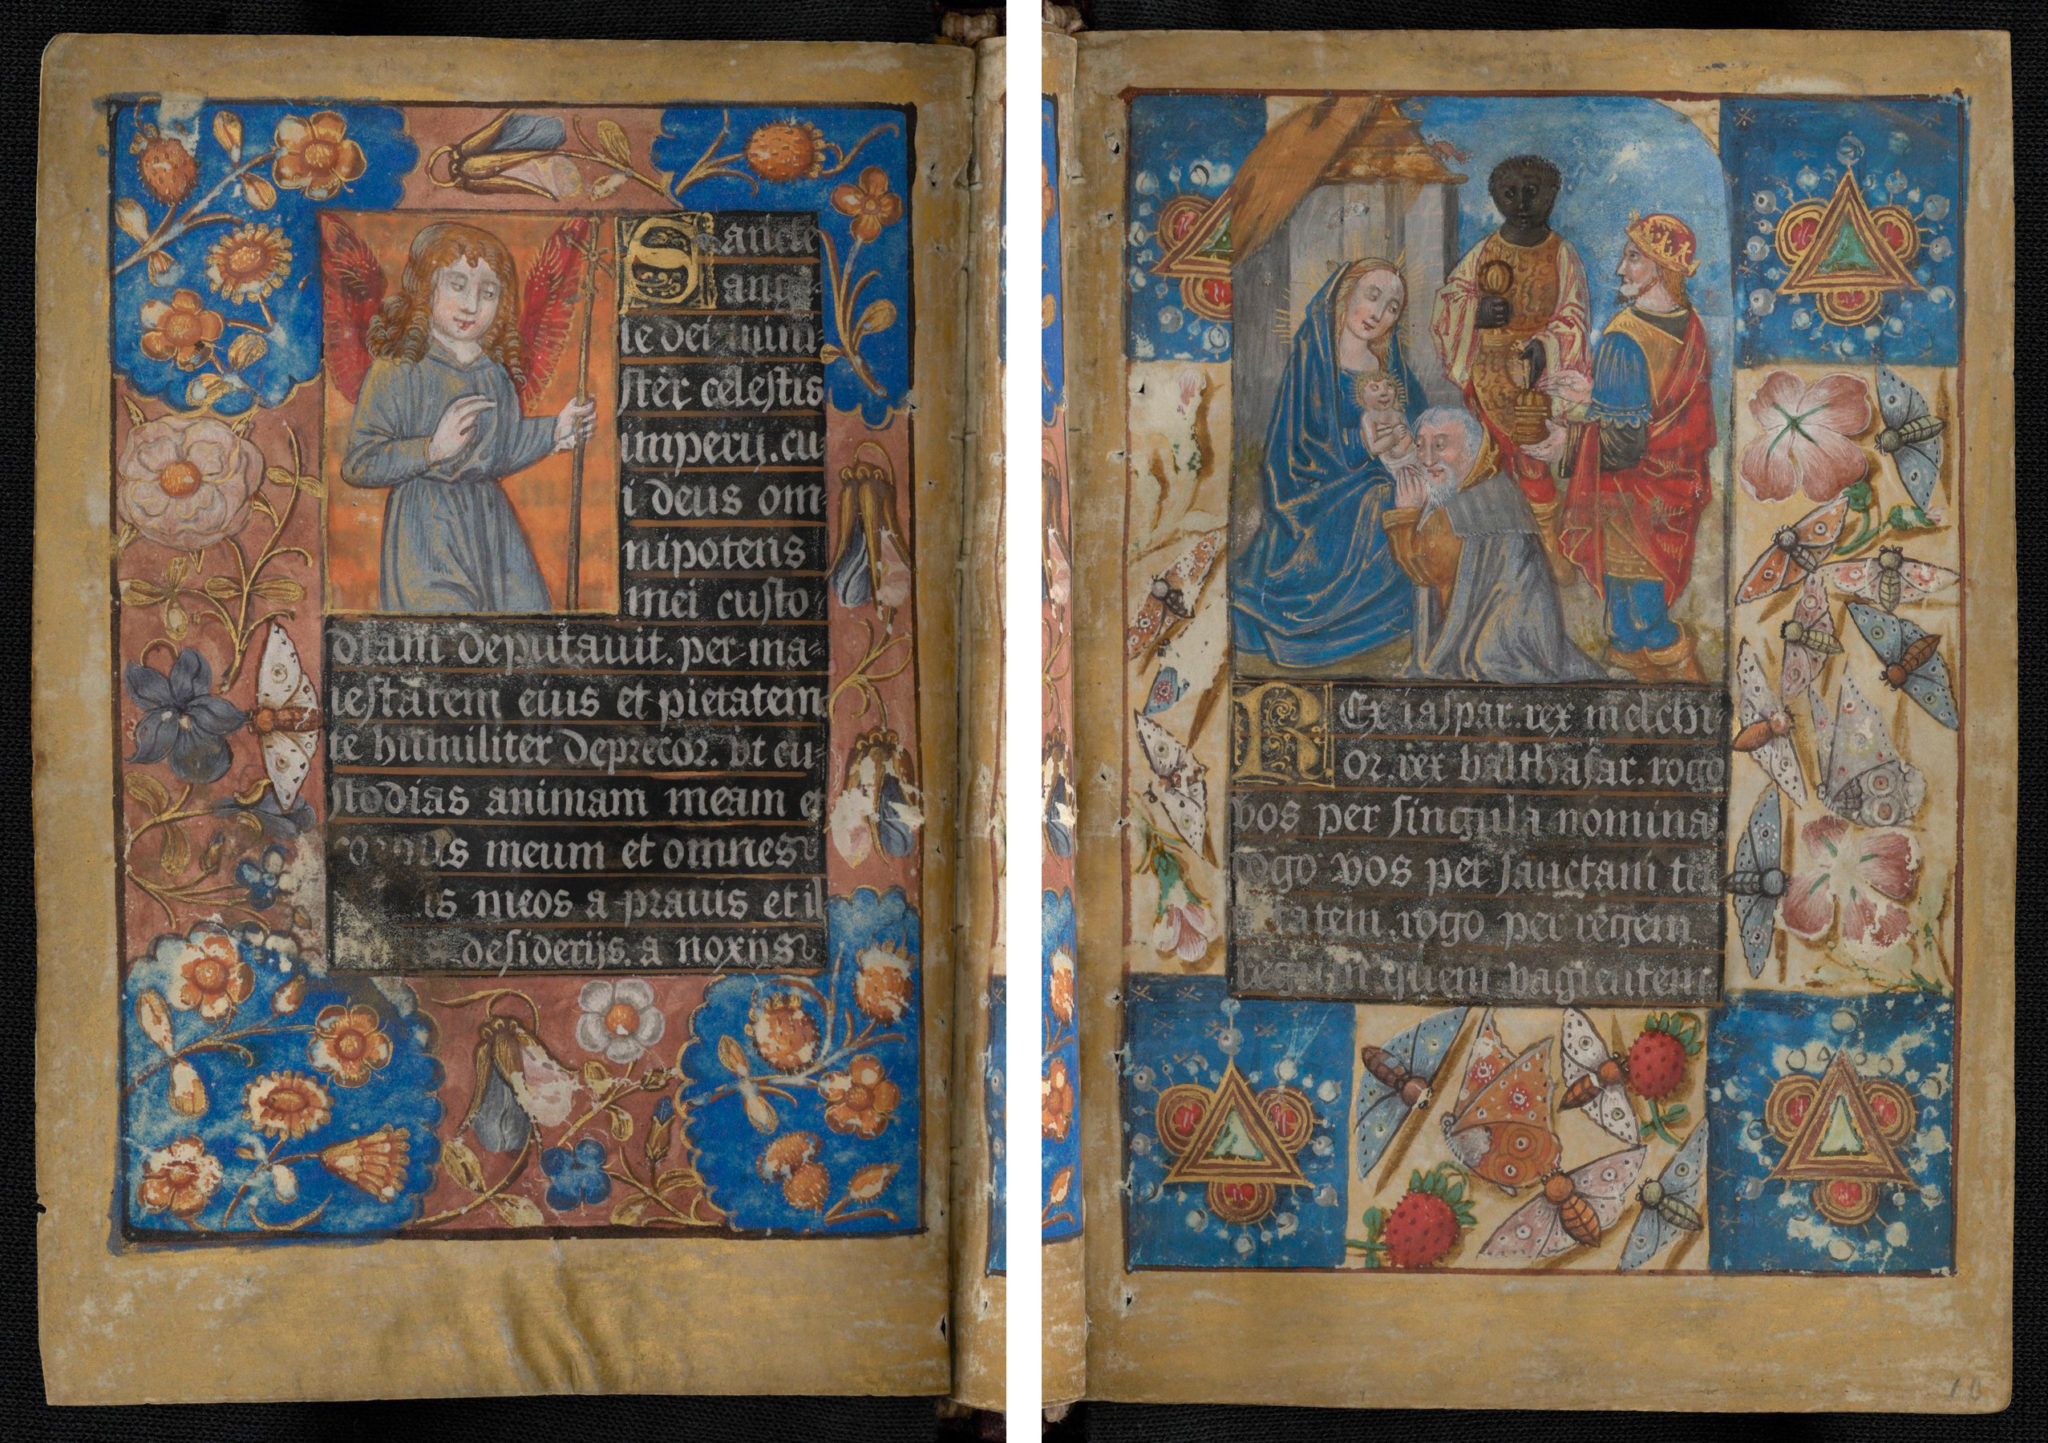 Sancte
ange-
le dei mini-
ster celestis
imperij. cu-
i deus om-
nipotens
mei custo-
diam deputauit. per ma-
iestatem eius et pietatem
te humiliter deprecor. vt cu-
stodias animam meam et
meum et omnes
meos a prauis et il
desiderijs. a noxijs
REx iaspar. rex melchi-
or. rex balthasar. rogo
vos per singula nomina.
rogo vos per sanctam tri
rogo per regem
quem vagientem